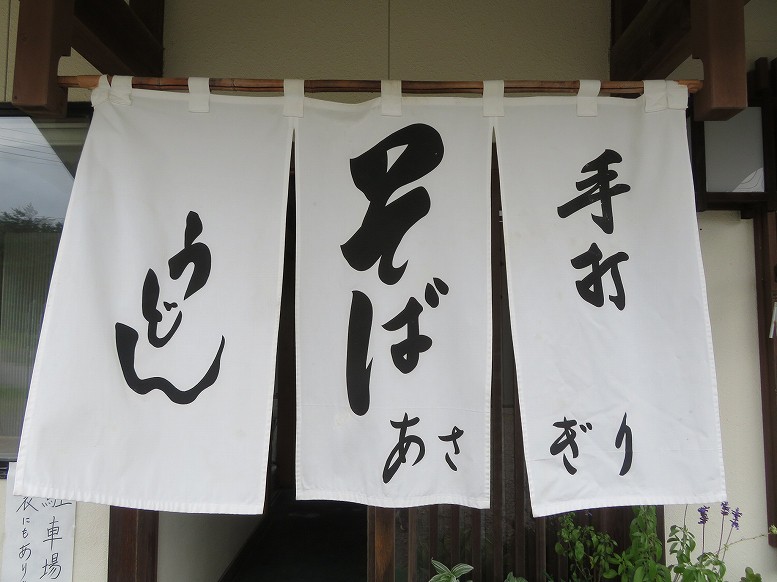 手打
そば
うどん
あさぎり
駐車場
裏にもあり